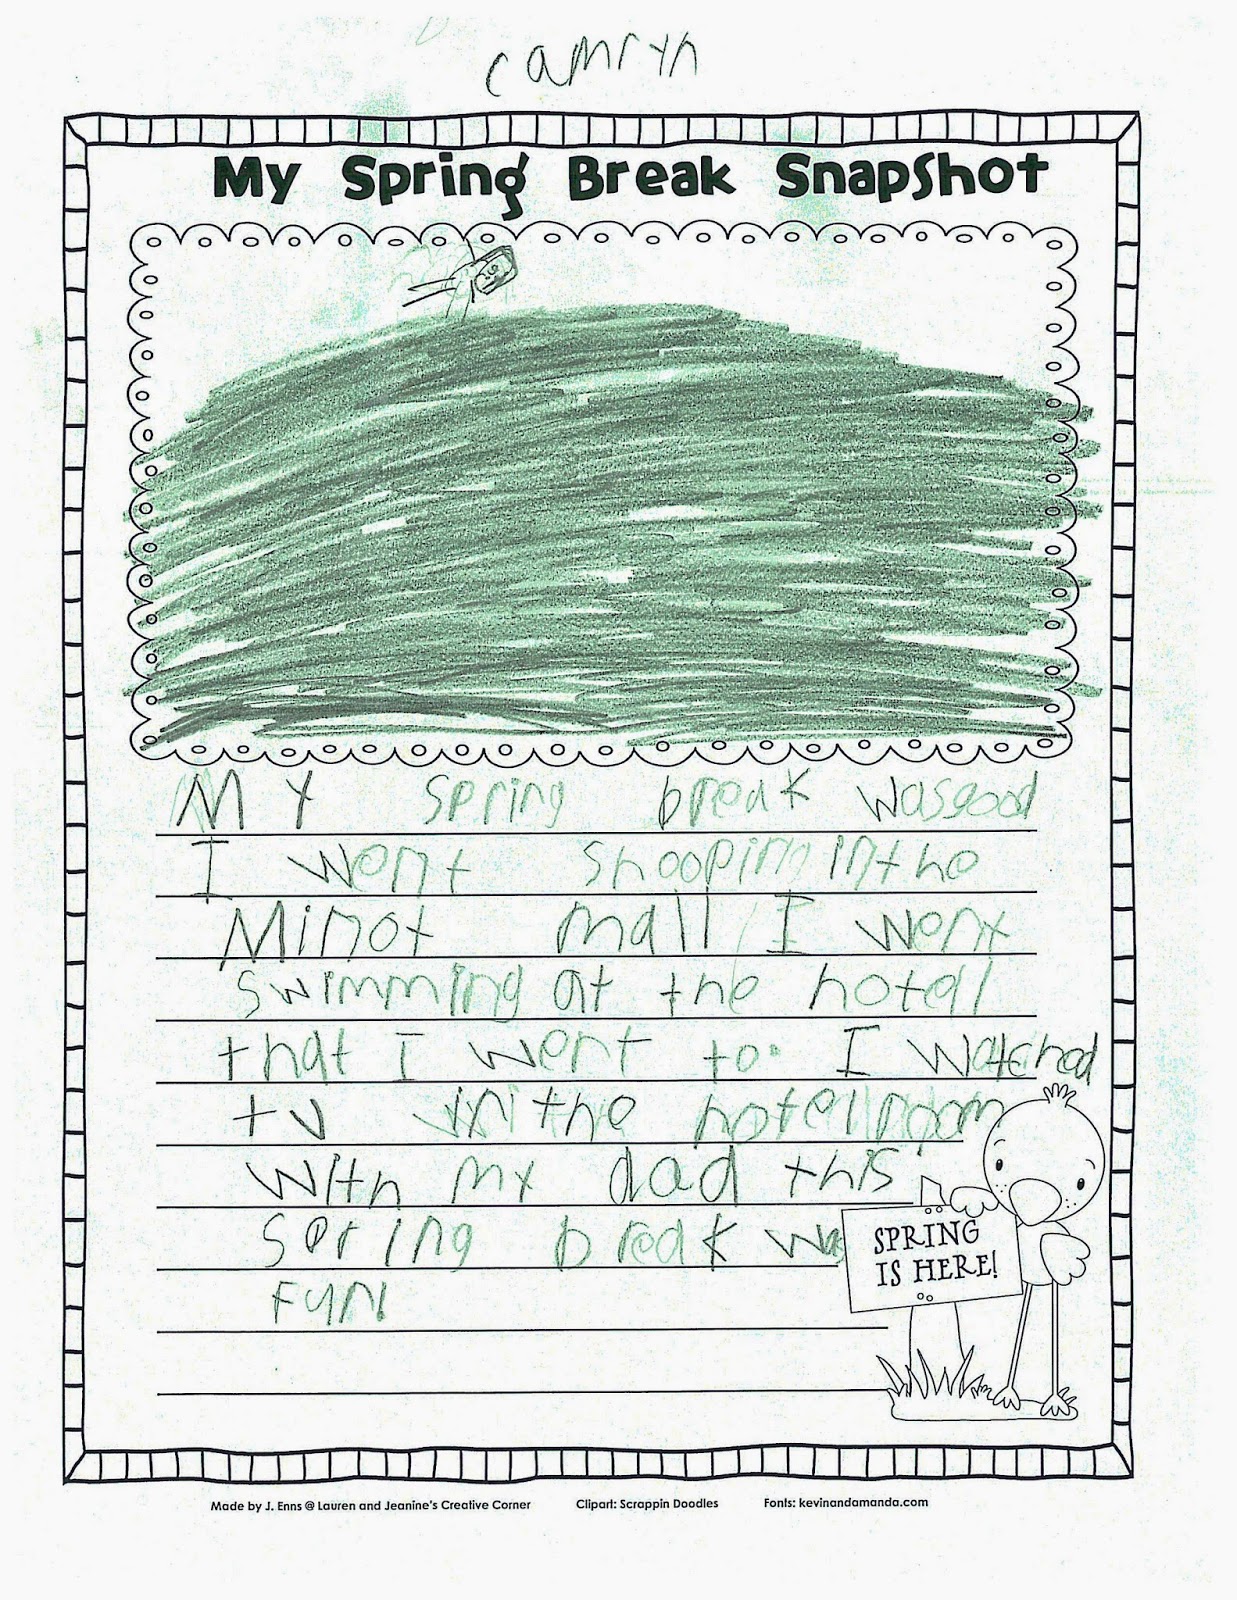 camryn
My Spring Break Snapshot
My spring break wasgood
I went shooping inthe
Minot mall I went
swimming at the hotell
that I went to. I watched
tv in the hotell room
with my dad this
spring break was
Fun
SPRING
IS HERE!
Made by J. Enns @ Lauren and Jeanine's Creative Corner Clipart: Scrappin Doodles Fonts: kevinandamanda.com